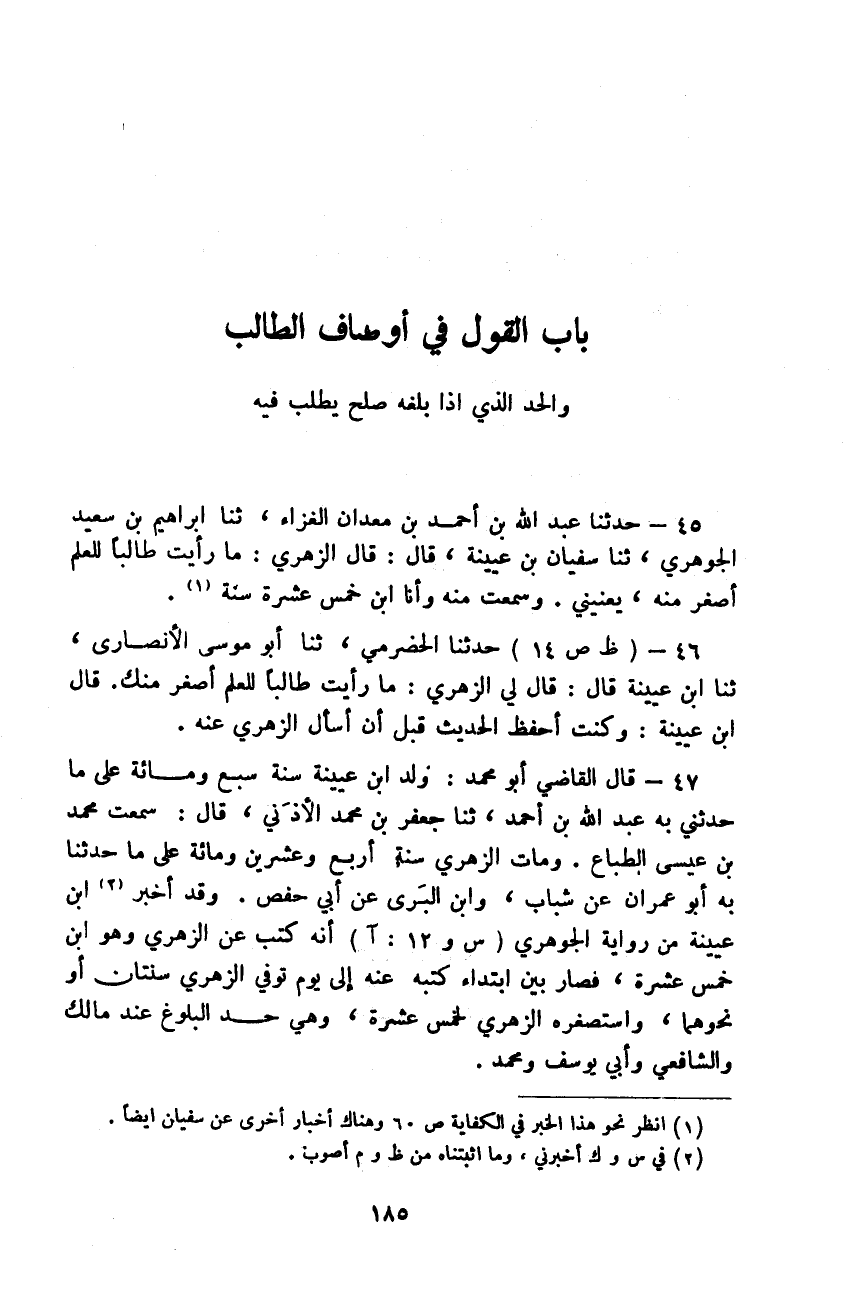 باب القول في أوصاف الطالب
والحد الذي اذا بلغه صلح يطلب فيه
٤٥ – حدثنا عبد الله بن أحمد بن معدان الغزاء ، ثنا ابراهيم بن سعيد
الجوهري ، ثنا سفيان بن عيينة ، قال : قال الزهري : ما رأيت طالباً للعلم
أصغر منه ، يعنيني . وسمعت منه وأنا ابن خمس عشرة سنة (١) .
٤٦ – ( ظ ص ١٤ ) حدثنا الحضرمي ، ثنا أبو موسى الأنصارى ،
ثنا ابن عيينة قال : قال لي الزهري : ما رأيت طالباً للعلم أصغر منك. قال
ابن عيينة : وكنت أحفظ الحديث قبل أن أسأل الزهري عنه .
٤٧ – قال القاضي أبو محمد : ولد ابن عيينة سنة سبع ومائة على ما
حدثني به عبد الله بن أحمد ، ثنا جعفر بن محمد الأذَني ، قال : سمعت محمد
بن عيسى الطباع . ومات الزهري سنة أربع وعشرين ومائة على ما حدثنا
به أبو عمران عن شباب ، وابن البَرى عن أبي حفص . وقد أخبر (٢) ابن
عيينة من رواية الجوهري ( س و ١٢ : آ ) أنه كتب عن الزهري وهو ابن
خمس عشرة ، فصار بين ابتداء كتبه عنه إلى يوم توفي الزهري سنتان أو
نحوهما ، واستصغره الزهري لخمس عشرة ، وهي حد البلوغ عند مالك
والشافعي وأبي يوسف ومحمد .
(١) انظر نحو هذا الخبر في الكفاية ص ٦٠ وهناك أخبار أخرى عن سفيان ايضاً .
(٢) في س و ك أخبرني ، وما اثبتناه من ظ و م أصوب .
١٨٥